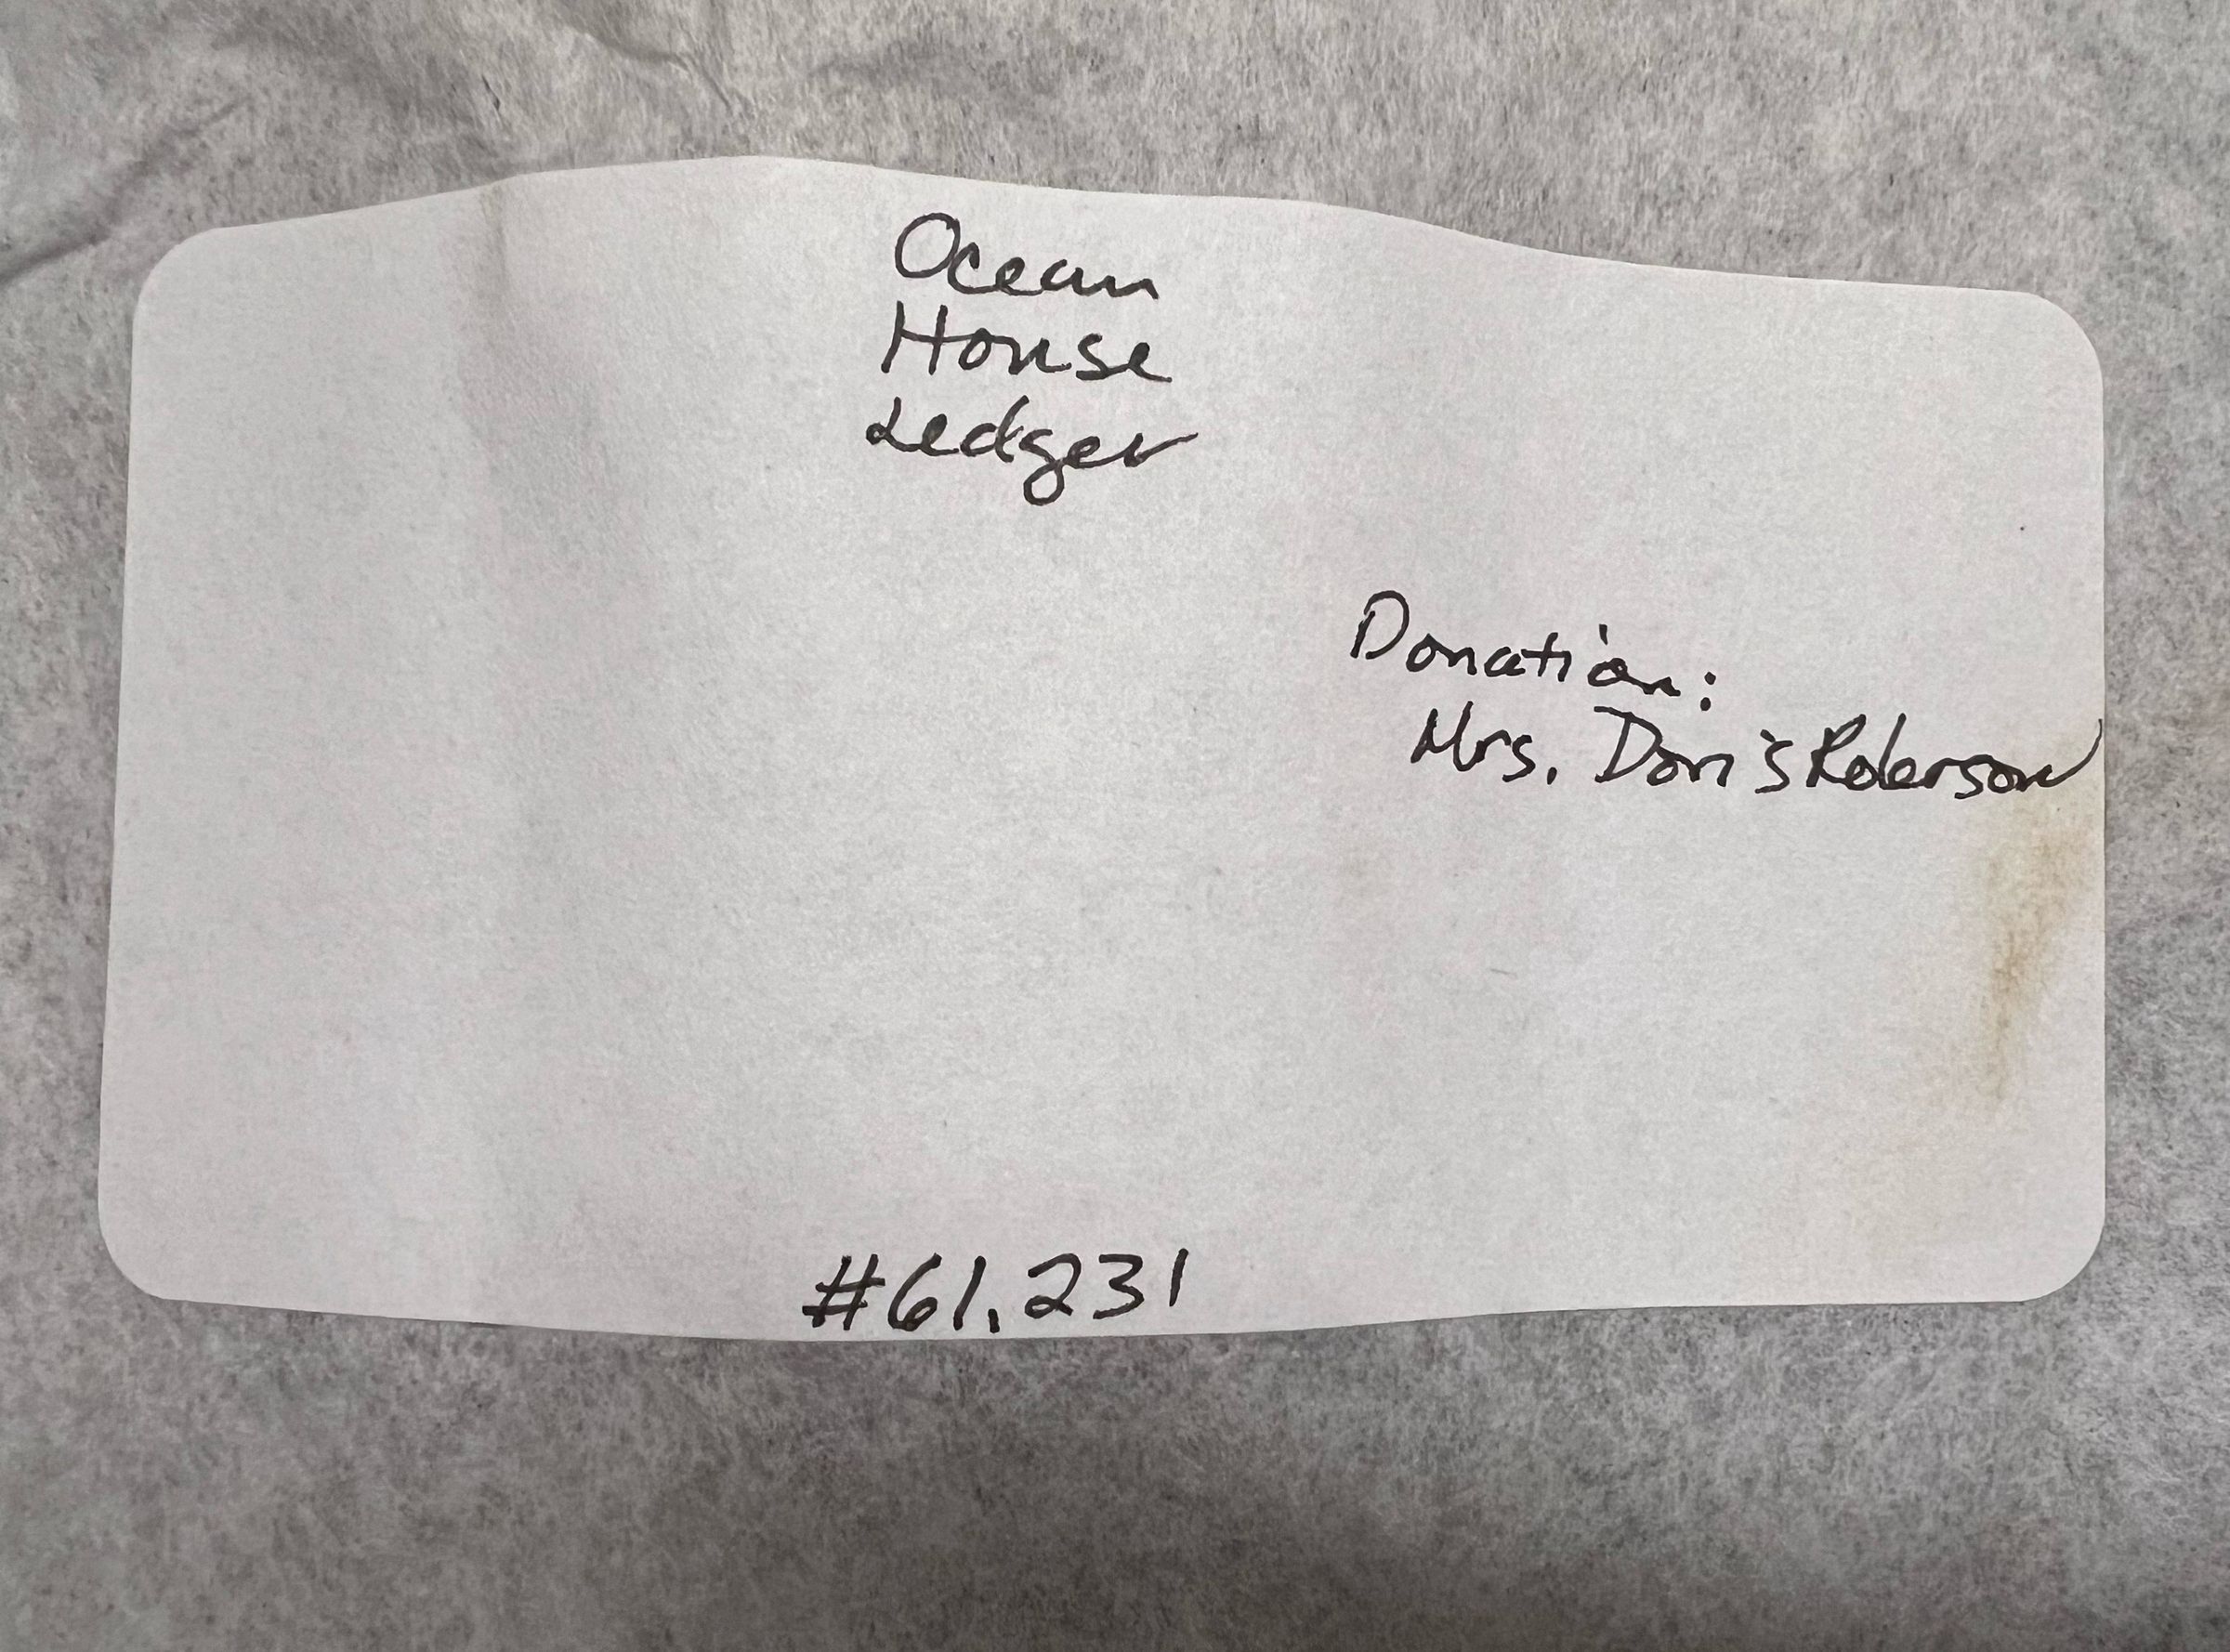 Ocean
House
Ledger
Donation:
Mrs. Doris Roberson
#61.231